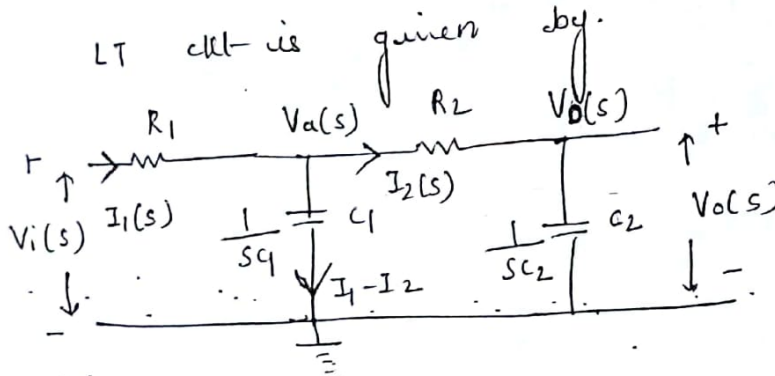 LT ckt is given by.
R1 Va(s) R2 Vo(s)
+ I1(s) I2(s) +
Vi(s) 1/SC1 C1 1/SC2 C2 Vo(s)
I1-I2
- -